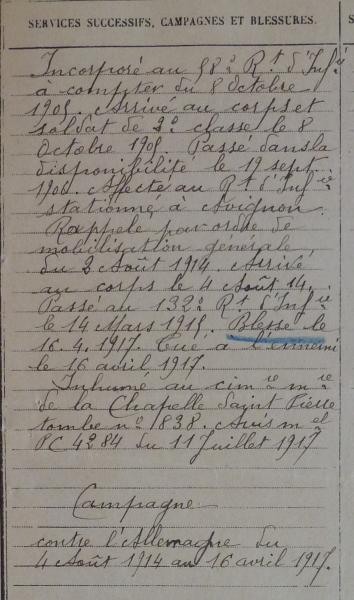 SERVICES SUCCESSIFS, CAMPAGNES ET BLESSURES.
Incorporé au 58e Rt d'Infie
à compter du 8 Octobre
1905. Arrivé au corps et
soldat de 2e classe le 8
Octobre 1905. Passé dans la
disponibilité le 19 sept.
1906. Affecté au Rt d'Infie
stationné à Avignon.
Rappelé par ordre de
mobilisation générale
du 2 Août 1914. Arrivé
au corps le 4 Août 14.
Passé au 132e Rt d'Infie
le 14 Mars 1915. Blessé le
16.4.1917. Tué à l'ennemi
le 16 avril 1917.
Inhumé au cimre mre
de la Chapelle Saint Pierre
tombe no 1838. Avis mel
PC 4284 du 11 Juillet 1917
Campagne
contre l'Allemagne du
4 Août 1914 au 16 avril 1917.